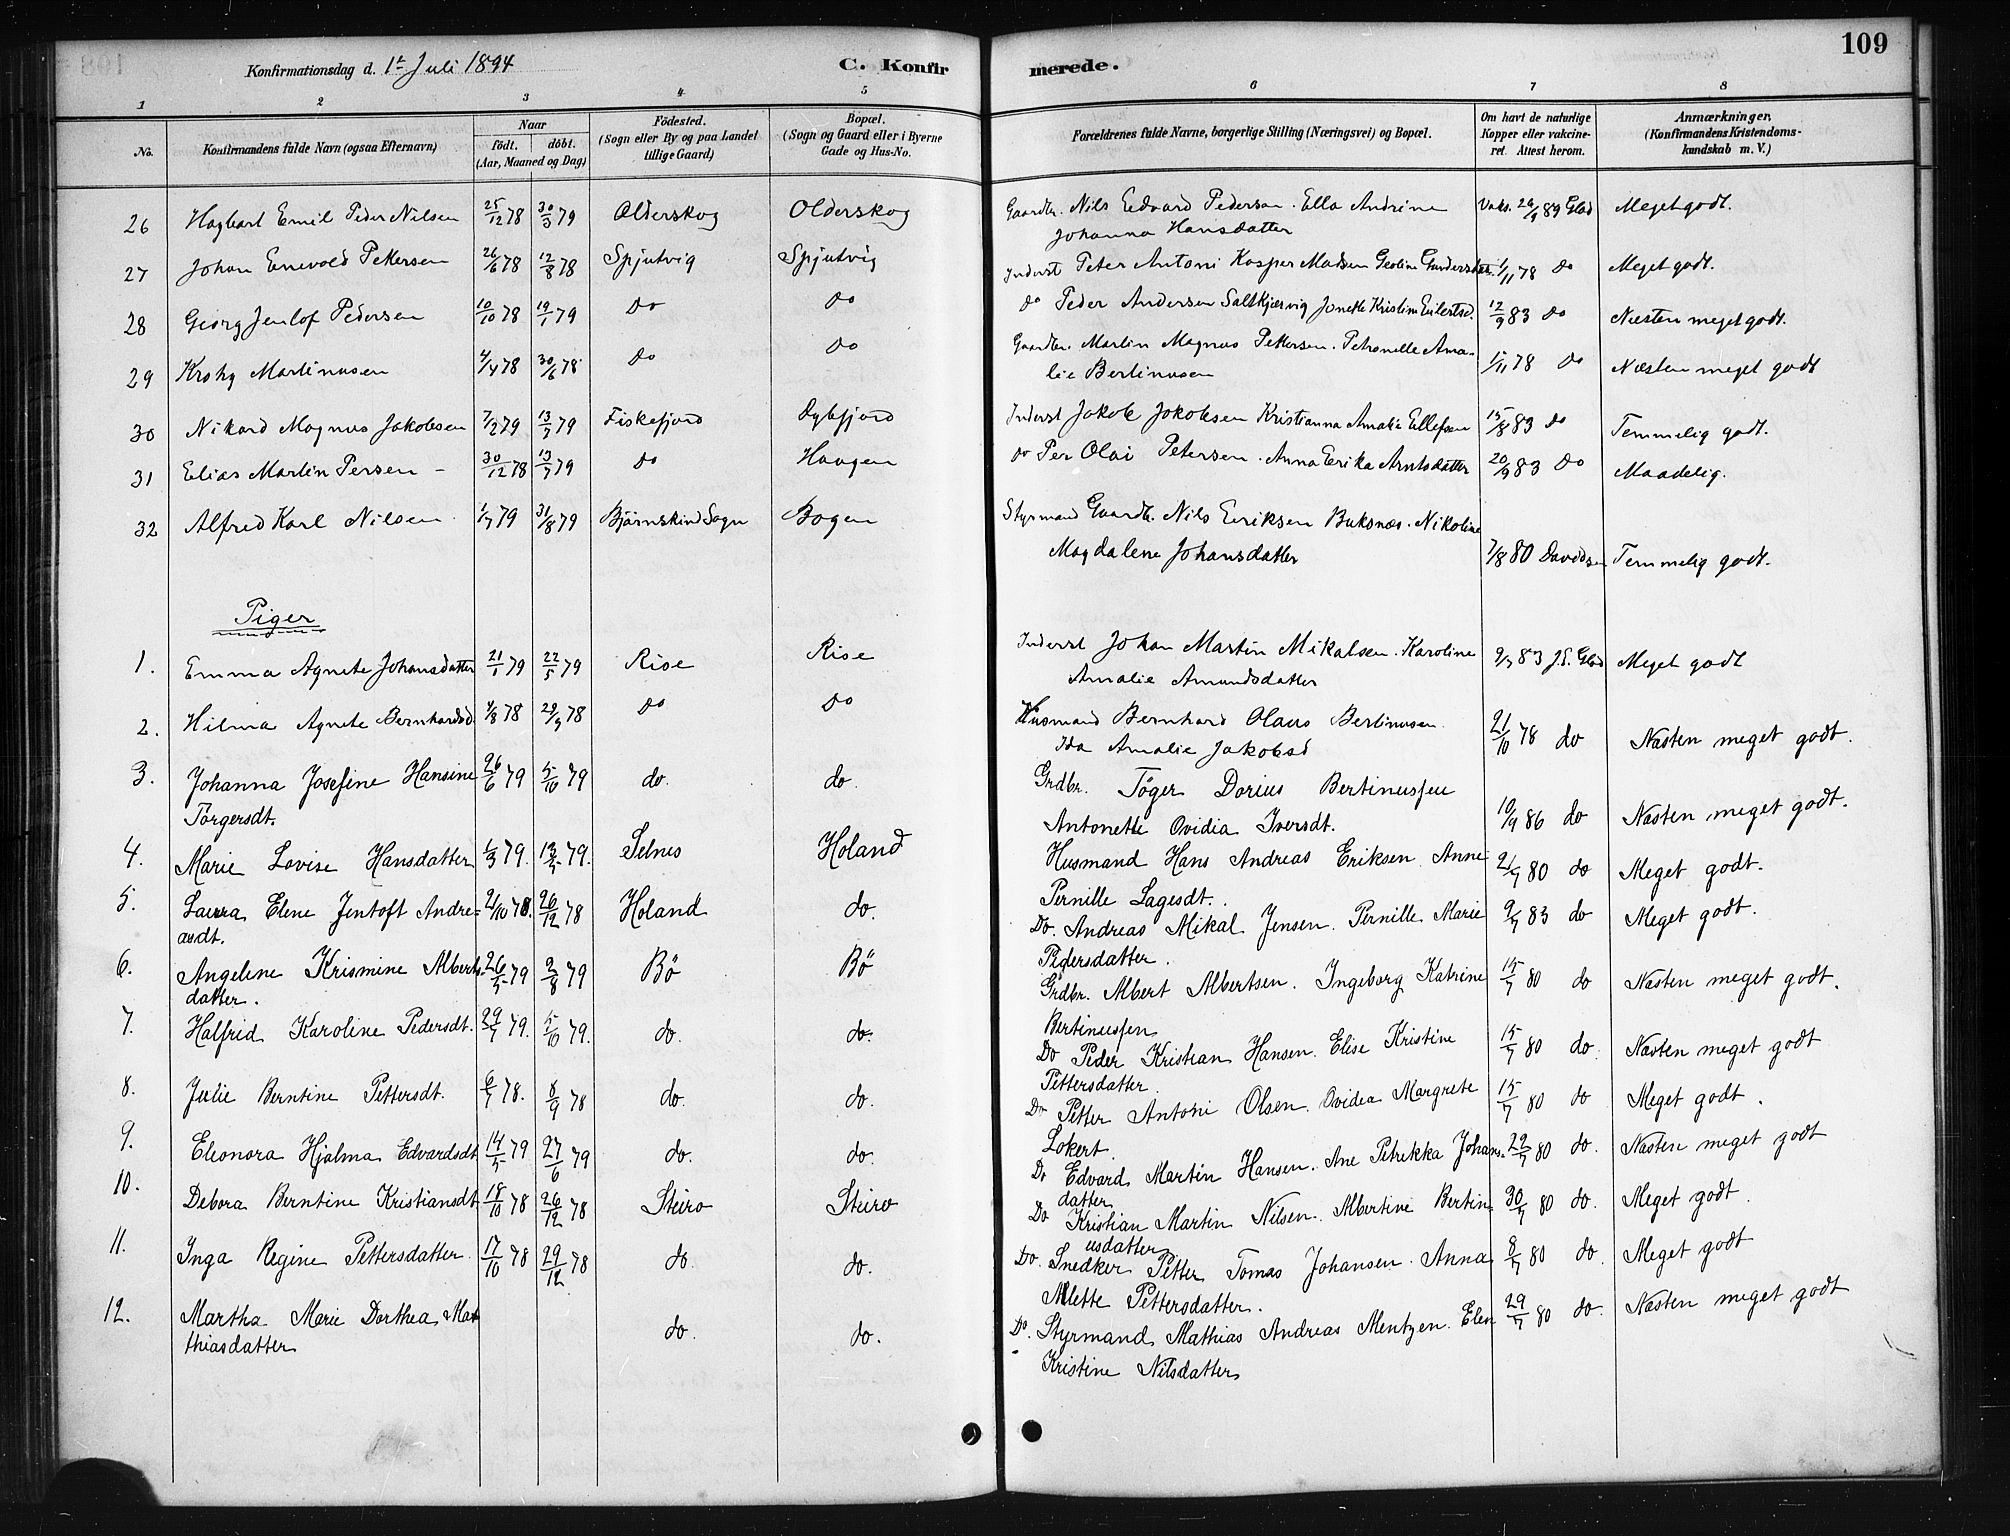 109
Konfirmationsdag d. 1ste Juli 1894
C. Konfirmerede.
1 2 3 4 5 6 7 8
No.
Konfirmandens fulde Navn (ogsaa Efternavn)
Naar
født. døbt.
(Aar, Maaned og Dag)
Fødested.
(Sogn eller By og paa Landet
tillige Gaard)
Bopæl.
(Sogn og Gaard eller i Byerne
Gade og Hus-No.
Forældrenes fulde Navne, borgerlige Stilling (Næringsvei) og Bopæl.
Om havt de naturlige
Kopper eller vakcine-
ret. Attest herom.
Anmærkninger,
(Konfirmandens Kristendoms-
kundskab m. V.)
26 Hagbart Emil Peder Nilsen 25/12 78 30/3 79 Olderskog Olderskog Gaardbr. Nils Edvard Pedersen. Ella Andrine Vaks. 29/9 89 Glad Meget godt.
Johanna Hansdatter
27 Johan Enevold Pettersen 26/6 78 12/8 78 Spjutvig Spjutvig Inderst Peter Antoni Kasper Madsen Geoline Gundersdat. 1/11 78 do Meget godt.
28 Georg Jenlof Pedersen 10/10 78 19/1 79 do do do Peder Andersen Saltkjærvig Jonette Kristine Eilertsd. 12/9 83 do Næsten meget godt.
29 Krohg Martinusen 4/4 78 30/6 78 do do Gaardbr. Martin Magnus Pettersen. Petronelle Ama-
lie Bertinusen 1/11 78 do Næsten meget godt
30 Nikard Magnus Jakobsen 7/2 79 13/7 79 Fiskefjord Dybfjord Inderst Jakob Jakobsen Kristianna Amalie Ellefsen 15/8 83 do Temmelig godt.
31 Elias Martin Persen - 30/12 78 13/7 79 do Haugen do Per Olai Petersen. Anna Erika Arntsdatter 20/9 83 do Maadelig.
32 Alfred Karl Nilsen 1/7 79 31/8 79 Bjørnskind Sogn Bogen Styrmand Gaardb. Nils Eeriksen Buksnæs. Nikoline
Magdalene Johansdatter 7/8 80 Davidsen Temmelig godt.
Piger
1. Emma Agnete Johansdatter 21/1 79 22/5 79 Rise Rise Inderst Johan Martin Mikalsen. Karoline 9/7 83 J.S. Glad Meget godt
Amalie Amundsdatter
2. Hilma Agnete Bernhardsd 4/8 78 29/9 78 do do Husmand Bernhard Olaus Bertinusen. 21/10 78 do Næsten meget godt.
Ida Amalie Jakobsd
3. Johanna Josefine Hansine 26/6 79 5/10 79 do. do. Grdbr. Töger Dorius Bertinussen
Törgersdt. Antonette Ovidia Iversdt. 10/9 86 do Næsten meget godt.
4. Marie Lovise Hansdatter 1/3 79. 13/5 79. Selnes Holand Husmand Hans Andreas Eriksen Anne 2/7 80 do Meget godt.
Pernille Lagesdt.
5. Laura Elene Jentoft Andre- 2/10 78. 26/12 78 Holand do. Do. Andreas Mikal Jensen. Pernille Marie 9/7 83 do Meget godt.
asdt. Pedersdatter.
6. Angeline Krismine Alberts- 26/5 79 2/8 79 Bö Bö Grdbr. Albert Albertsen. Ingeborg Katrine 15/7 80 do Næsten meget godt.
datter. Bertinussen
7. Halfrid Karoline Pedersdt. 29/7 79. 5/10 79. do. do. Do Peder Kristian Hansen. Elise Kristine 15/7 80 do. Næsten meget godt
Pettersdatter.
8. Julie Berntine Pettersdt. 6/7 78. 8/9 78 do. do. Do Petter Antoni Olsen. Ovidea Margrete 15/7 80 do Meget godt.
Lokert.
9. Eleonora Hjalma Edvardsdt 14/5 79 27/6 79 do. do. Do Edvard Martin Hansen. Ane Petrikka Johans- 22/7 80 do. Næsten meget godt
datter
10. Debora Berntine Kristiansdt 18/10 78 26/12 78 Steiro Steiro Do Kristian Martin Nilsen. Albertine Bertin- 30/7 80 do. Meget godt.
usdatter
11. Inga Regine Pettersdatter. 17/10 78 29/12 78 do do. Do. Snedker Petter Tomas Johansen. Anna 8/7 80 do. Meget godt
Mette Pettersdatter.
12. Martha Marie Dorthea Mat- do. do. Do. Styrmand Mathias Andreas Mentzen. Elen 29/7 80 do. Næsten meget godt
thiasdatter Kristine Nilsdatter